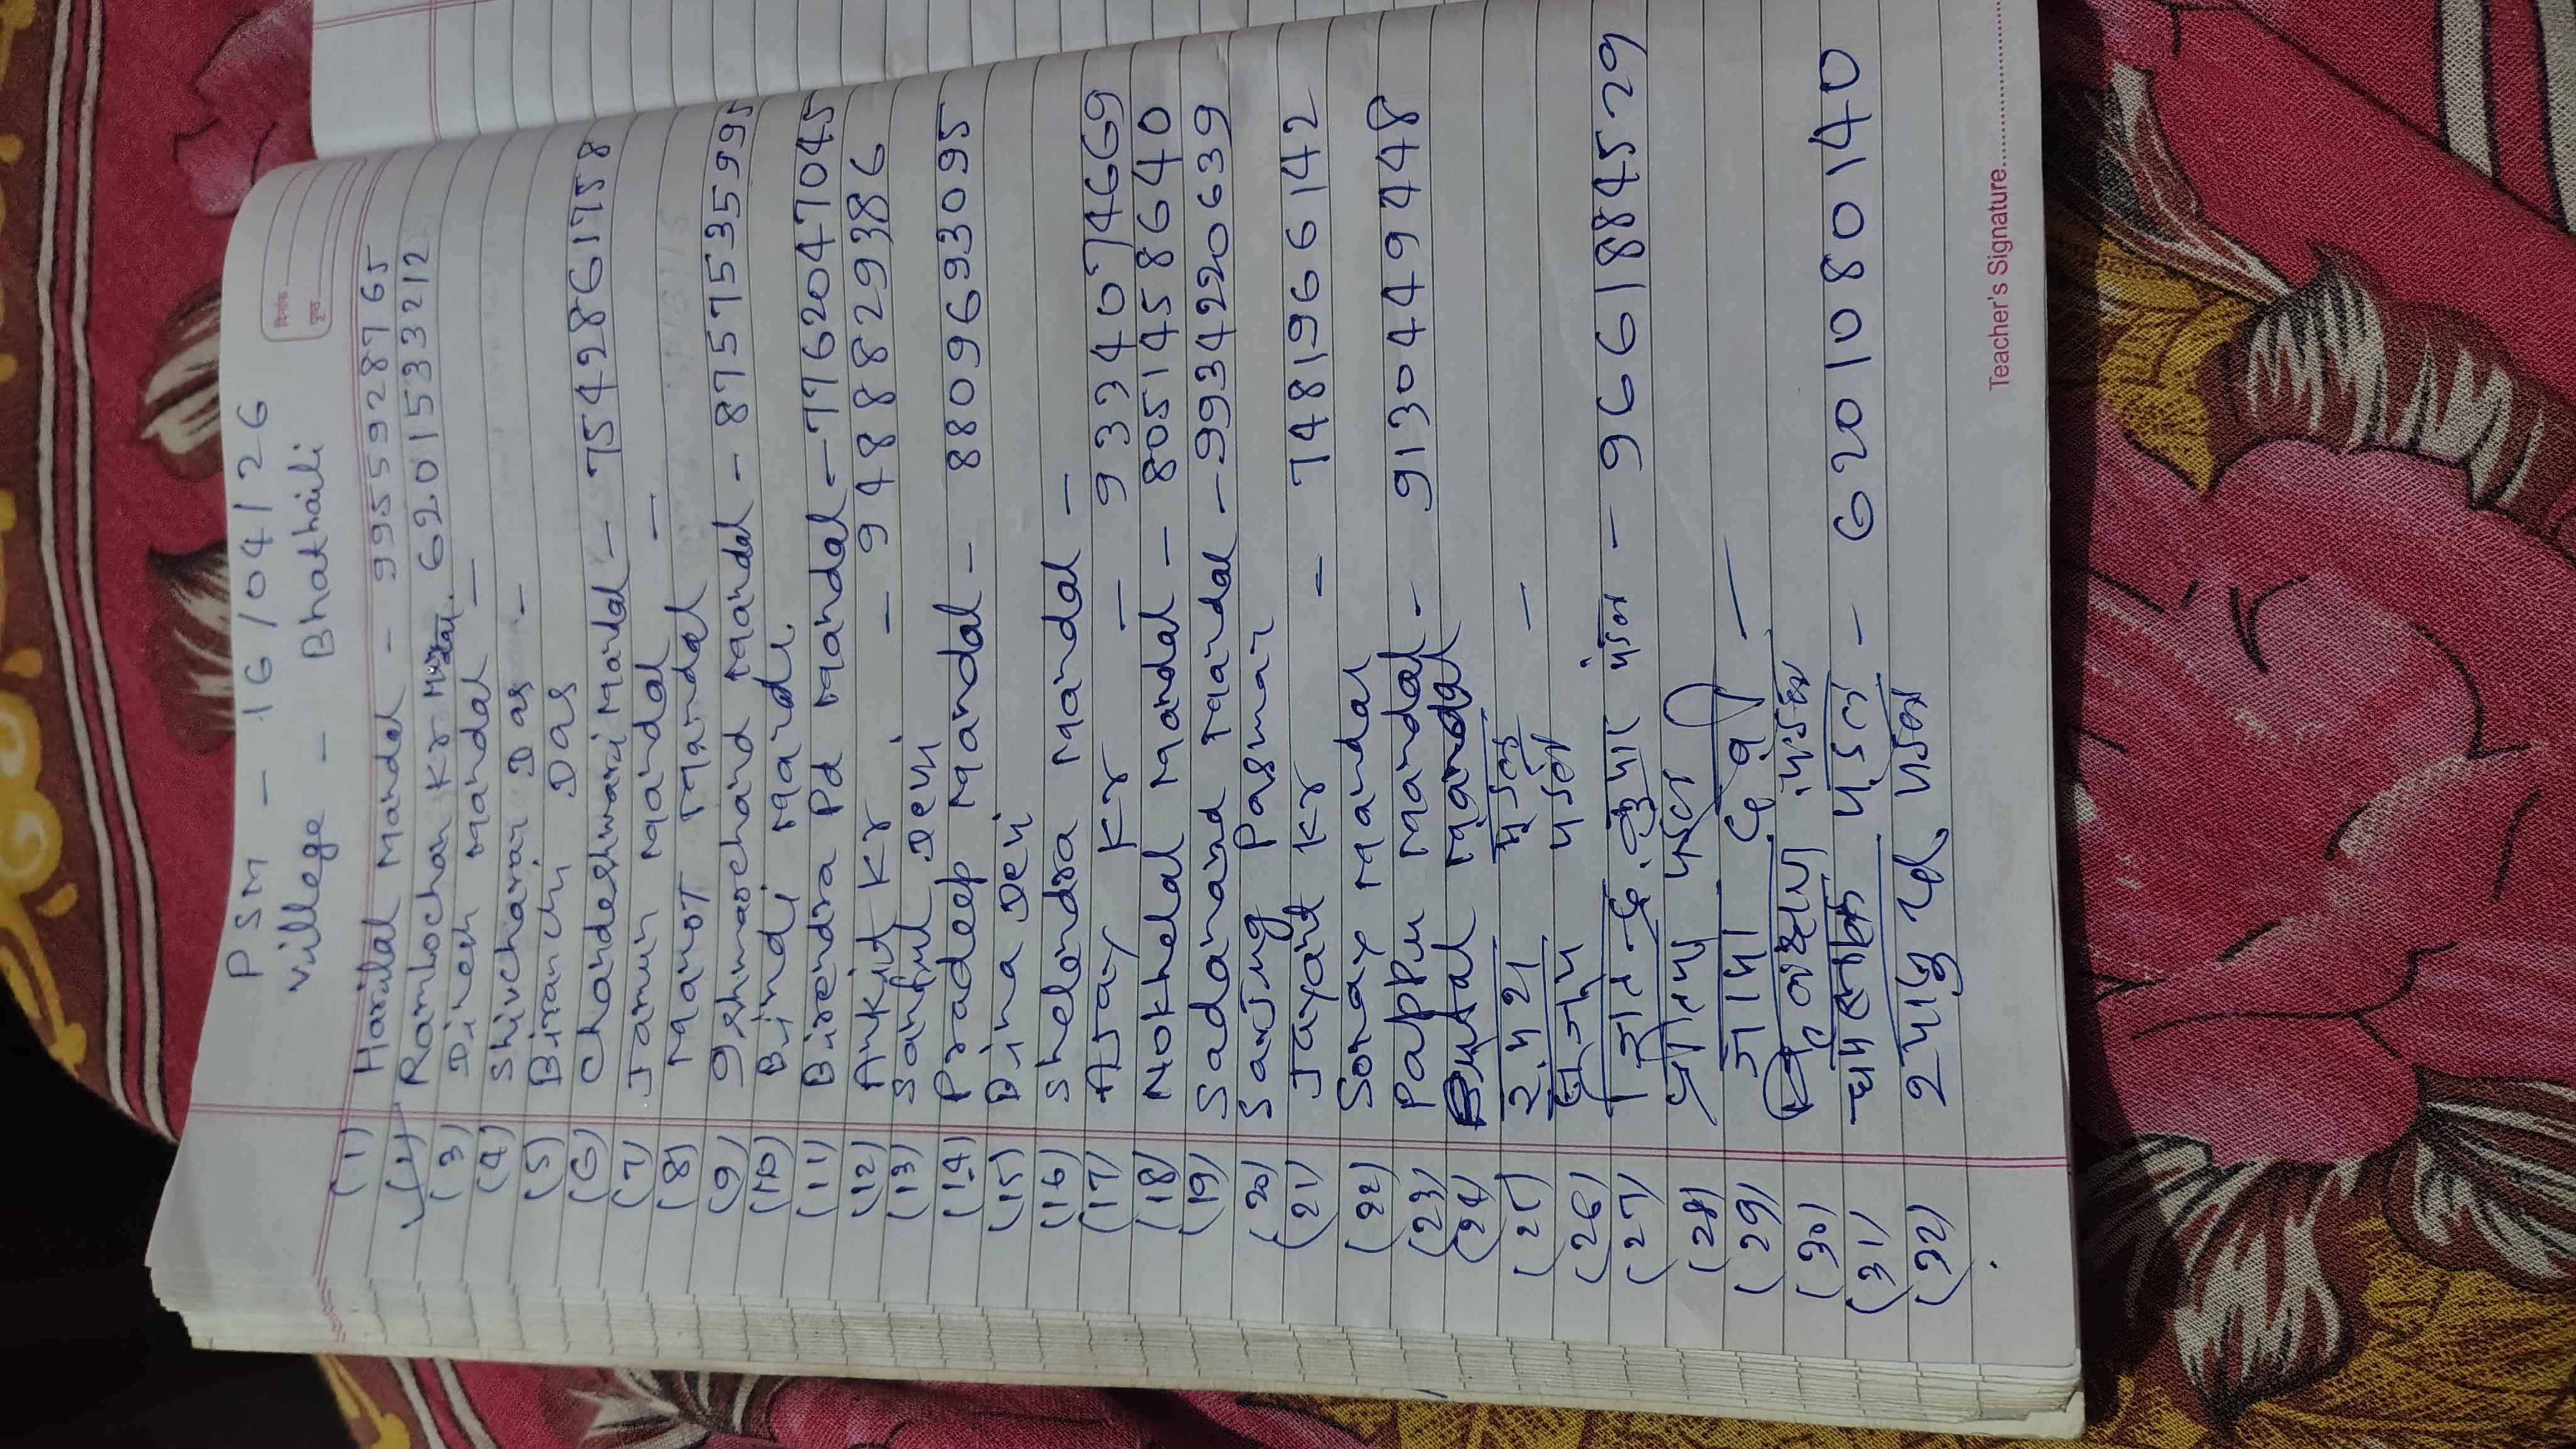 PSM - 16/04/26
दिनांक
पृष्ठ
Village - Bhathaili
(1) Harilal Mandal - 9955928765
(2) Ramlochan Kr Mandal. 6201533212
(3) Dinesh Mandal -
(4) Shivcharan Das -
(5) Biranchi Das
(6) Chandeshwari Mandal - 7542861758
(7) Jamun Mandal
(8) Manoj Mandal -
(9) Mandal - 8757535995
(10) Bindi Mandal
(11) Birendra Pd Mandal - 7762047045
(12) Ankit Kr - 9488829386
(13) Devi
(14) Pradeep Mandal - 8809693095
(15) Dina Devi
(16) Shelendra Mandal -
(17) Ajay Kr - 9334074669
(18) Nokhelal Mandal - 8051458640
(19) Sadanand Mandal - 9934220639
(20) Sanjug Pasman
(21) Jayant Kr - 7481966142
(22) Sonay Mandal
(23) Pappu Mandal - 9130449448
(24) Mandal
(25) मंडल -
(26) मंडल
(27) कुमार मंडल - 9661884529
(28) मंडल
(29) देवी -
(30) मंडल
(31) मंडल - 6201080140
(32) मंडल
Teacher's Signature